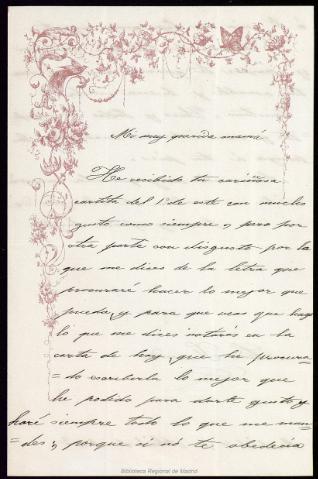 Mi muy querida mamá
He recibido tu cariñosa
cartita del 1º de este con mucho
gusto como siempre, pero por
otra parte con disgusto por lo
que me dices de la letra que
procuraré hacer lo mejor que
pueda, y para que veas que hago
lo que me dices notarás en la
carta de hoy, que he procura-
=do escribirla lo mejor que
he podido para darte gusto y
haré siempre todo lo que me man-
=des, porque si no te obedecia
Biblioteca Regional de Madrid